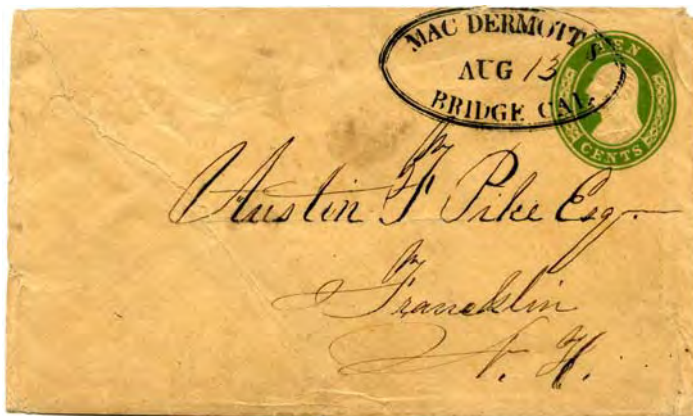 MAC DERMOTT'S
AUG 13
BRIDGE CAL.
TEN
CENTS
Austin F Pike Esq.
Francklin
N. H.